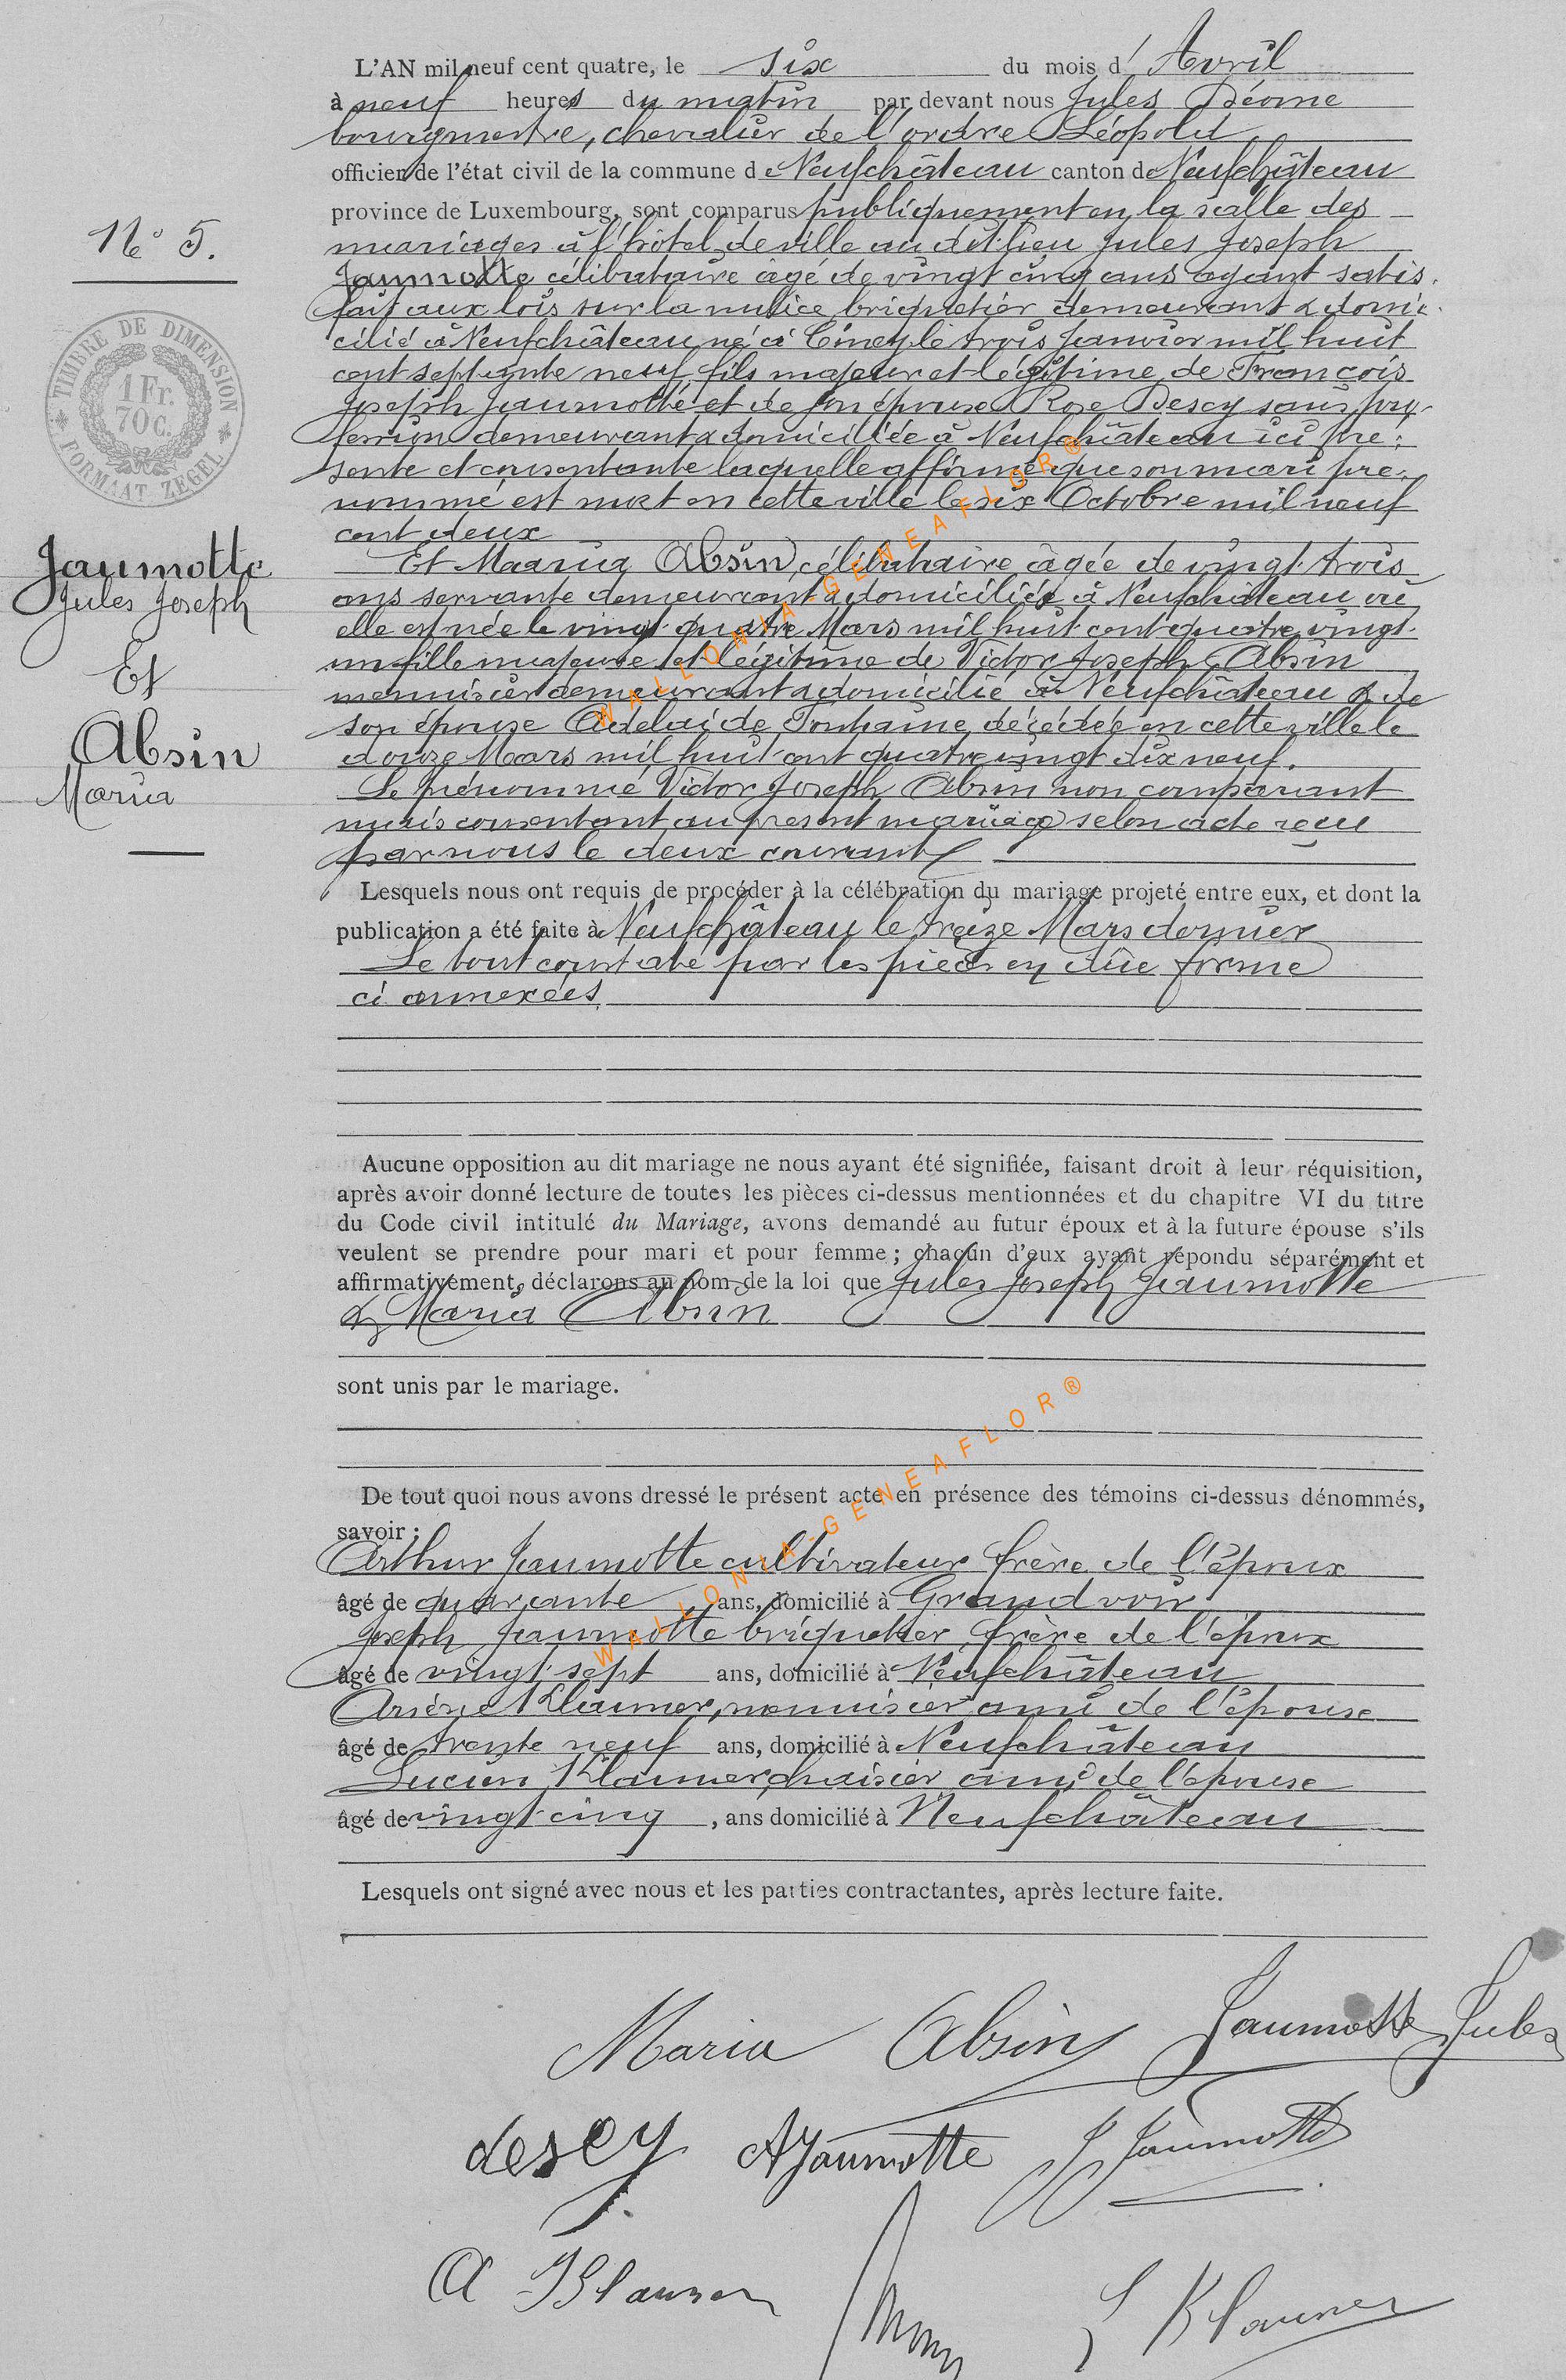 L'AN mil neuf cent quatre, le six du mois d' Avril
à neuf heures du matin par devant nous Jules Déome
bourgmestre, chevalier de l'ordre Léopold
officier de l'état civil de la commune de Neufchâteau canton de Neufchâteau
province de Luxembourg, sont comparus publiquement en la salle des
mariages à l'hôtel de ville au dit lieu Jules Joseph
Jaumotte célibataire âgé de vingt cinq ans ayant satis
fait aux lois sur la milice briquetier demeurant & domi
cilié à Neufchâteau né à Ciney le trois Janvier mil huit
cent septante neuf, fils majeur et légitime de François
Joseph Jaumotte et de son épouse Rose Descy sans pro
fession demeurant & domiciliée à Neufchâteau ici pré
sente et consentante laquelle affirme que son mari pré
nommé est mort en cette ville le six Octobre mil neuf
cent deux
Et Maria Absin, célibataire âgée de vingt trois
ans servante demeurant & domiciliée à Neufchâteau où
elle est née le vingt quatre Mars mil huit cent quatre vingt
un fille majeure et légitime de Victor Joseph Absin
menuisier demeurant & domicilié à Neufchâteau & de
son épouse Adélaïde Ponhaine, décédée en cette ville le
douze Mars mil huit cent quatre vingt dix neuf.
Le prénommé Victor Joseph Absin non comparant
mais consentant au présent mariage selon acte reçu
par nous le deux courant
Lesquels nous ont requis de procéder à la célébration du mariage projeté entre eux, et dont la
publication a été faite à Neufchâteau le treize Mars dernier
Le tout constaté par les pièces en dûe forme
ci annexées
Aucune opposition au dit mariage ne nous ayant été signifiée, faisant droit à leur réquisition,
après avoir donné lecture de toutes les pièces ci-dessus mentionnées et du chapitre VI du titre
du Code civil intitulé du Mariage, avons demandé au futur époux et à la future épouse s'ils
veulent se prendre pour mari et pour femme ; chacun d'eux ayant répondu séparément et
affirmativement, déclarons au nom de la loi que Jules Joseph Jaumotte
& Maria Absin
sont unis par le mariage.
De tout quoi nous avons dressé le présent acte en présence des témoins ci-dessus dénommés,
savoir :
Arthur Jaumotte cultivateur frère de l'époux
âgé de quarante ans, domicilié à Grandvoir
Joseph Jaumotte briquetier frère de l'époux
âgé de vingt sept ans, domicilié à Neufchâteau
Arsène Klauner, menuisier ami de l'épouse
âgé de trente neuf ans, domicilié à Neufchâteau
Lucien Klauner, chaisier ami de l'épouse
âgé de vingt cinq, ans domicilié à Neufchâteau
Lesquels ont signé avec nous et les parties contractantes, après lecture faite.
Maria Absin Jaumotte Jules
descy A Jaumotte J Jaumotte
A Klauner L Klauner
N° 5.
TIMBRE DE DIMENSION
1 Fr.
70 C.
FORMAAT ZEGEL
Jaumotte
Jules Joseph
Et
Absin
Maria
WALLONIA-GENEAFLOR®
WALLONIA-GENEAFLOR®